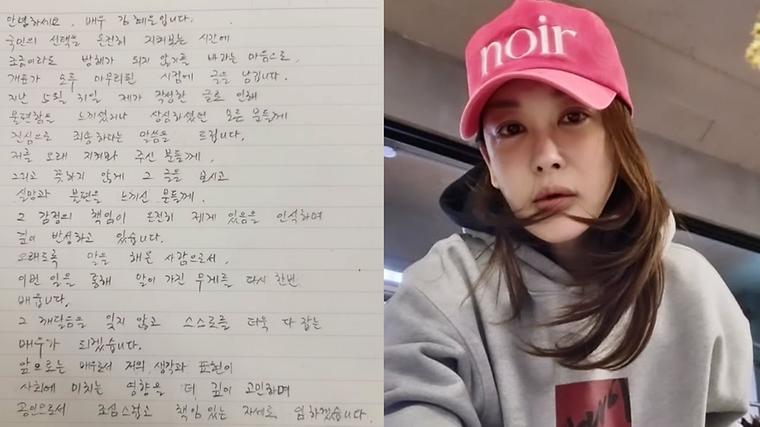 안녕하세요, 배우 김혜은입니다.
국민의 선택을 온전히 지켜보는 시간에
조금이라도 방해가 되지 않기를 바라는 마음으로,
개표가 모두 마무리된 시점에 글을 남깁니다.
지난 5월 31일 제가 작성한 글로 인해
불편함을 느끼셨거나 상심하셨던 모든 분들께
진심으로 죄송하다는 말씀을 드립니다.
저를 오래 지켜봐 주신 분들께,
그리고 뜻하지 않게 그 글을 보시고
실망과 불편을 느끼신 분들께,
그 감정의 책임이 온전히 제게 있음을 인식하며
깊이 반성하고 있습니다.
오래도록 말을 해온 사람으로서,
이번 일을 통해 말이 가진 무게를 다시 한번
배웁니다.
그 깨달음을 잊지 않고 스스로를 더욱 다잡는
배우가 되겠습니다.
앞으로는 배우로서 저의 생각과 표현이
사회에 미치는 영향을 더 깊이 고민하며
공인으로서 조심스럽고 책임 있는 자세로 임하겠습니다.
noir